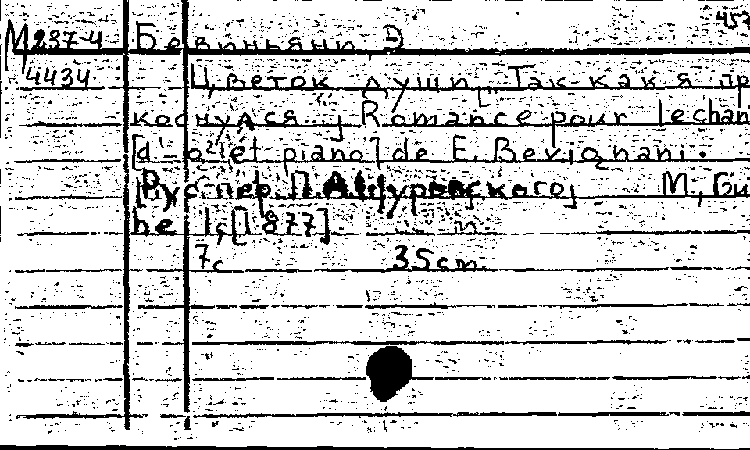 453
М237-4 Бевиньяни, Э
4434 Цветок души. Так как я пр
коснулся.; Romance pour le chan
[d'-o] et piano] de E. Bevignani.
[Рус. пер. М.; Gu
he l, [1877].
7с 35 cm.